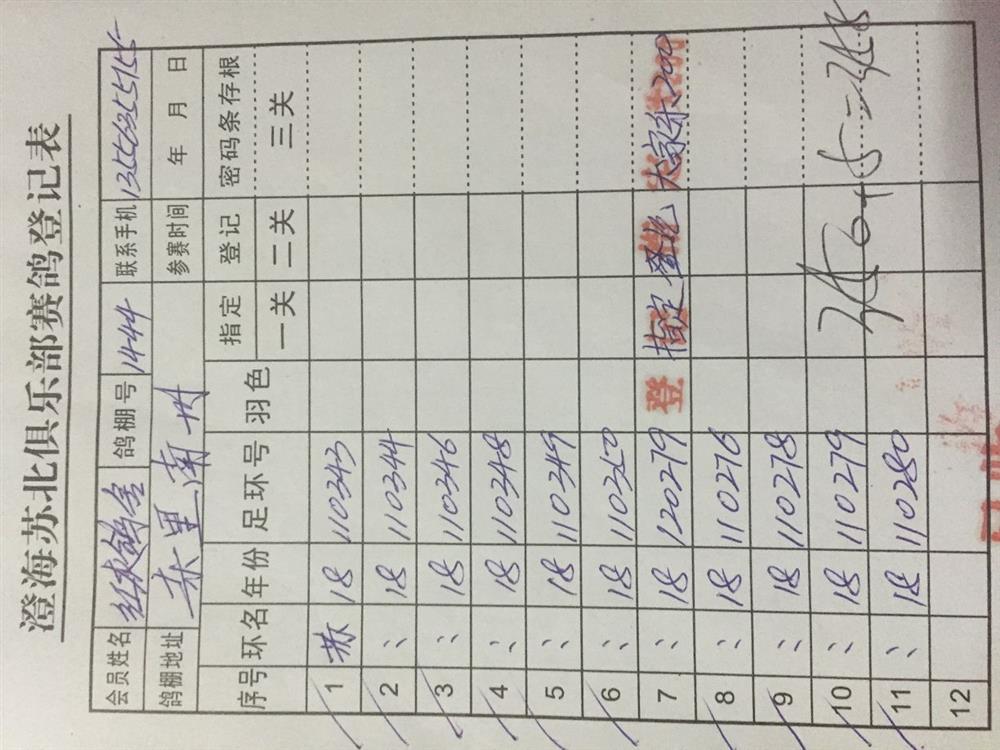 澄海苏北俱乐部赛鸽登记表
会员姓名 鸽舍 鸽棚号 1444 联系手机 13556255155
鸽棚地址 南 参赛时间 年 月 日
序号 环名 年份 足环号 羽色 指定 登记 密码条存根
一关 二关 三关
1 苏 18 110343
2 〃 18 110344
3 〃 18 110346
4 〃 18 110348
5 〃 18 110349
6 〃 18 110350
7 〃 18 120279 登 指定 登记 大家乐200
8 〃 18 110276
9 〃 18 110278
10 〃 18 110279
11 〃 18 110280
12